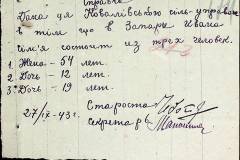 Справка
Дана ця Ковалівською сіль-управою
в тім що в Запары Ивана
сім'я состоит из трех человек.
1 Жена - 54 лет
2 Дочь - 12 лет.
3 Дочь - 19 лет.
27/IX-43 г. Староста
секретарь